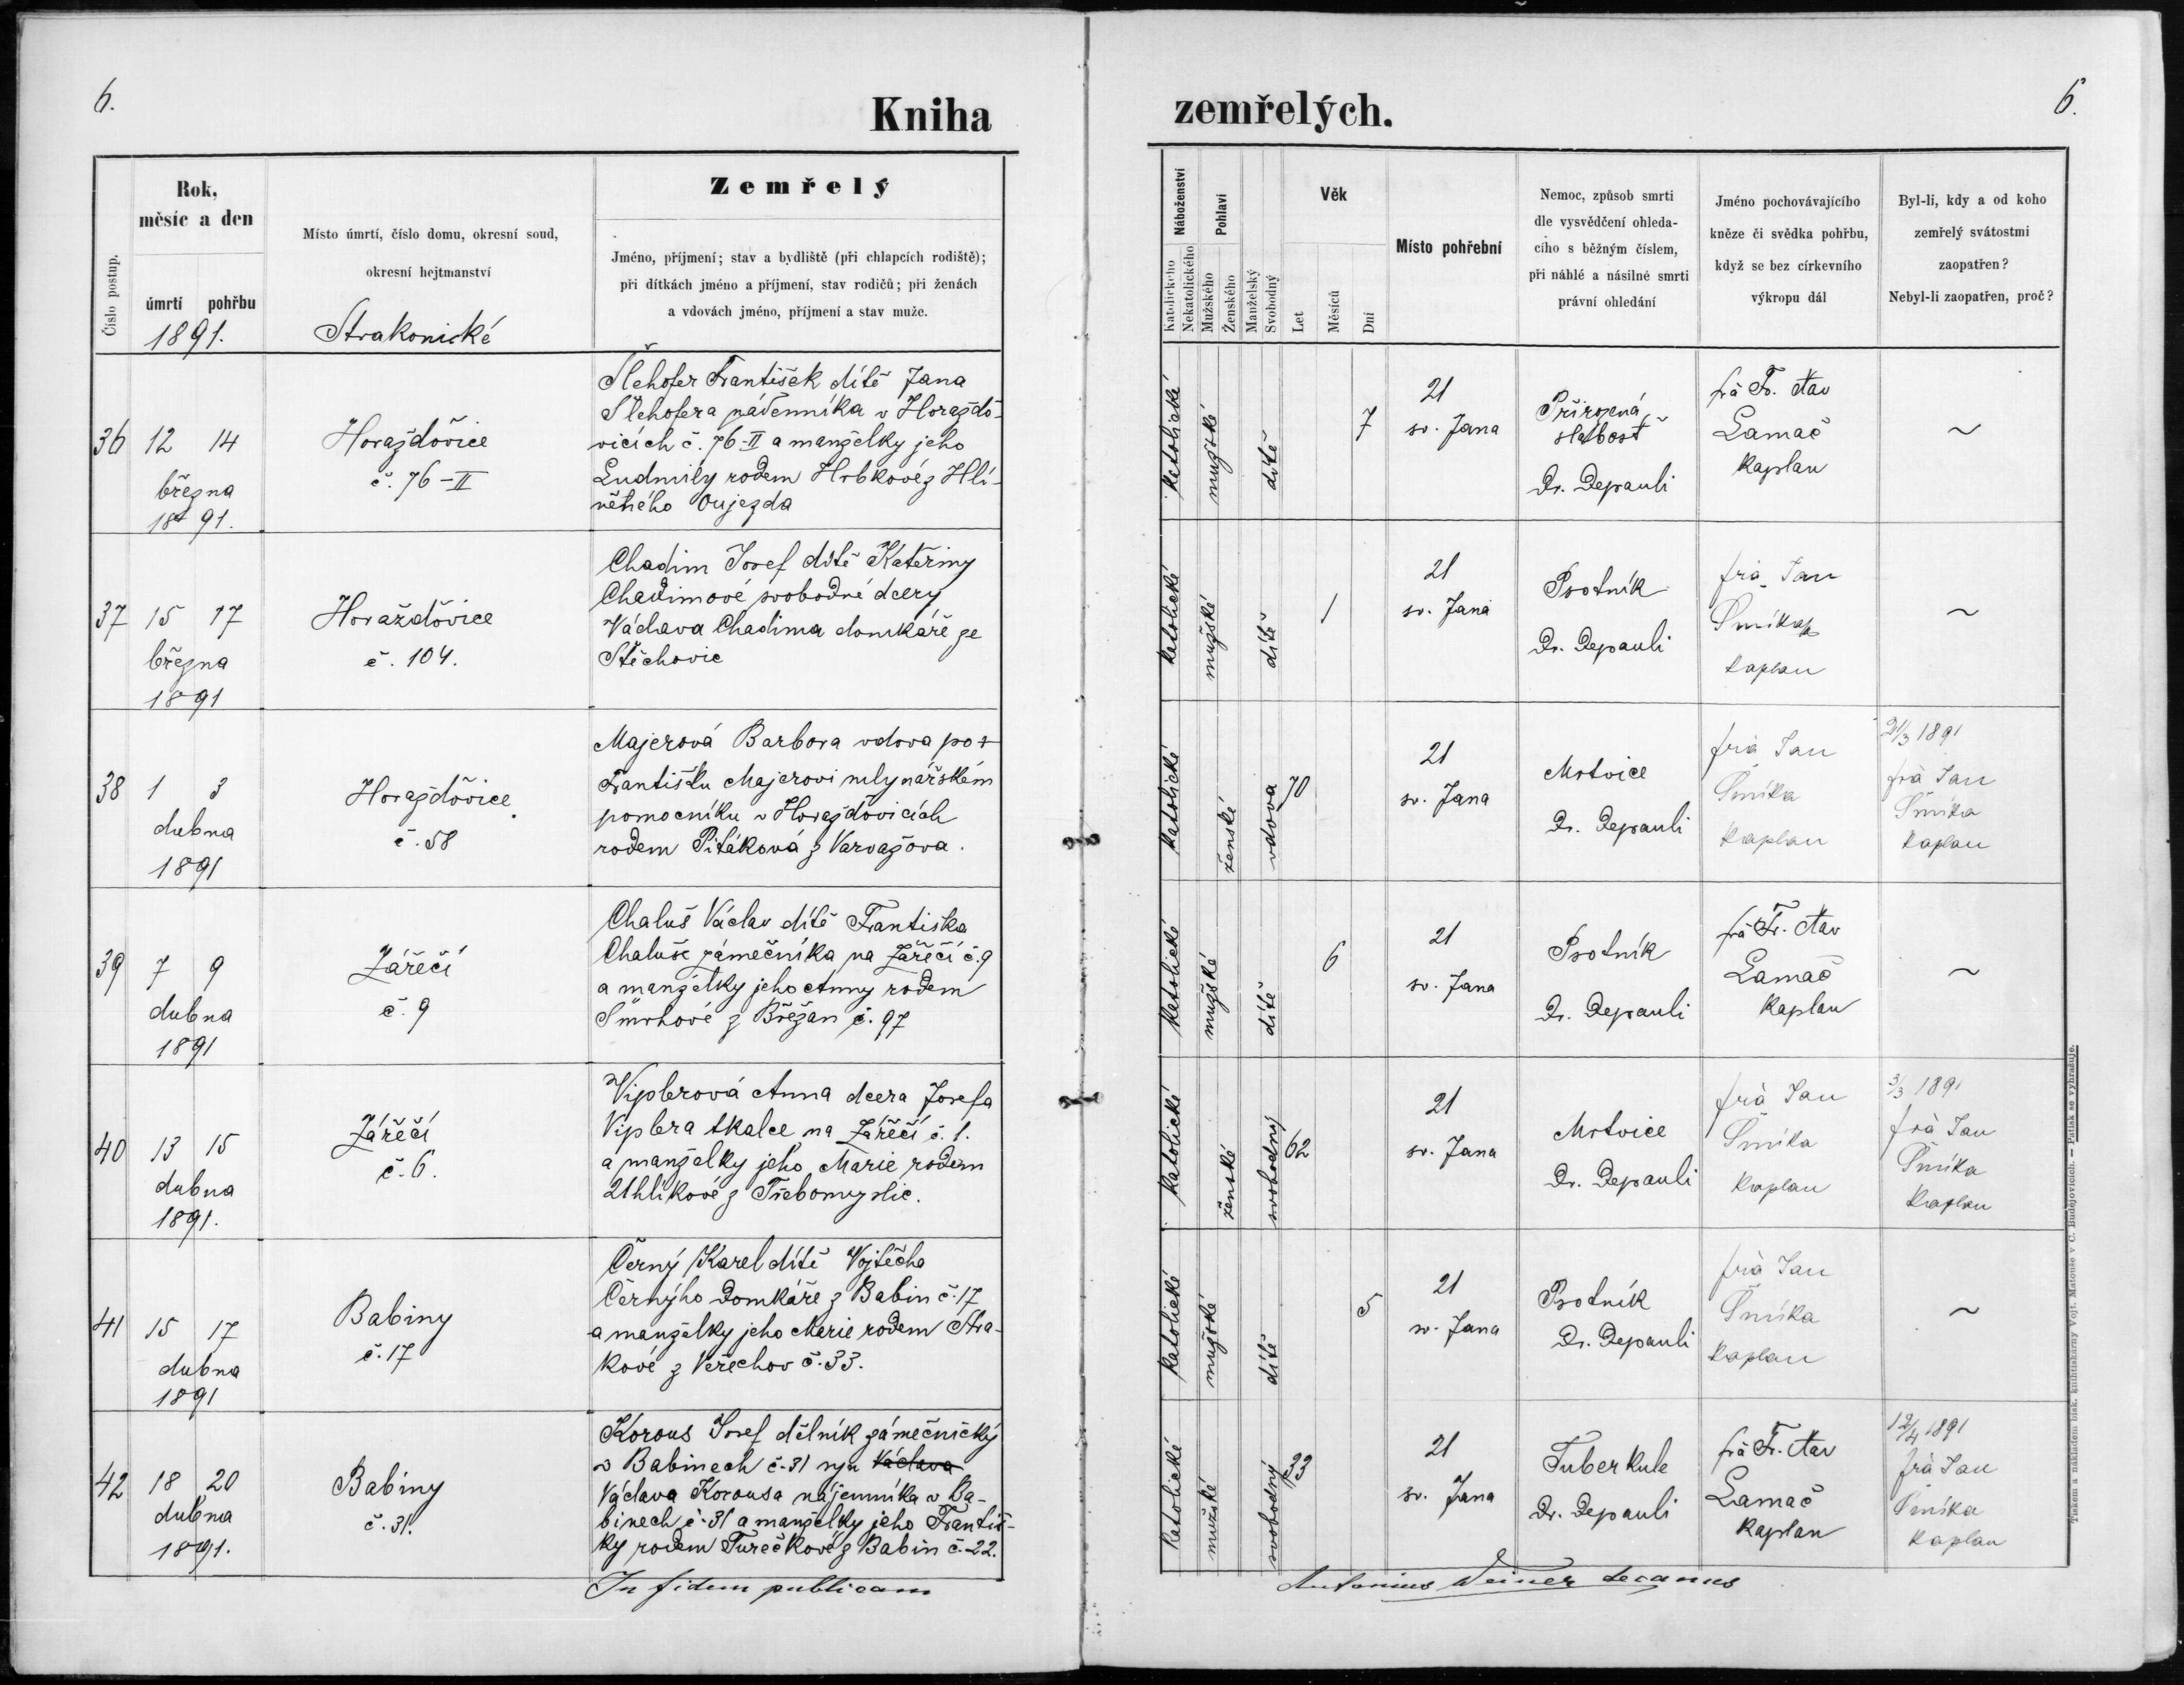 6.
Kniha
Rok,
měsíc a den
Číslo postup.
úmrtí pohřbu
1891.
Místo úmrtí, číslo domu, okresní soud,
okresní hejtmanství
Strakonické
Zemřelý
Jméno, příjmení; stav a bydliště (při chlapcích rodiště);
při dítkách jméno a příjmení, stav rodičů; při ženách
a vdovách jméno, příjmení a stav muže.
36 12 14
března
1891.
Horažďovice
č. 76-II
Šlehofer František dítě Jana
Šlehofera nádenníka v Horažďo-
vicích č. 76-II a manželky jeho
Ludmily rodem Hrbkové z Hli-
něného Oujezda
37 15 17
března
1891
Horažďovice
č. 104.
Chadim Josef dítě Kateřiny
Chadimové svobodné dcery
Václava Chadima domkáře ze
Stěchovic
38 1 3
dubna
1891
Horažďovice
č. 58
Majerová Barbora vdova po
Františku Majerovi mlynářském
pomocníku v Horažďovicích
rodem Pitáková z Varvažova.
39 7 9
dubna
1891
Zářečí
č. 9
Chaluš Václav dítě Františka
Chaluše zámečníka na Zářečí č. 9
a manželky jeho Anny rodem
Šmrhové z Břežan č. 97
40 13 15
dubna
1891.
Zářečí
č. 6.
Viplerová Anna dcera Josefa
Viplera tkalce na Zářečí č. 1.
a manželky jeho Marie rodem
Uhlíkové z Třebomyslic.
41 15 17
dubna
1891
Babiny
č. 17
Černý Karel dítě Vojtěcha
Černýho domkáře z Babin č. 17
a manželky jeho Marie rodem Stra-
kové z Veřechov č. 33.
42 18 20
dubna
1891.
Babiny
č. 31.
Korous Josef dělník zámečnický
v Babinech č. 31 syn Václava
Václava Korousa nájemníka v Ba-
binech č. 31 a manželky jeho Františ-
ky rodem Turečkové z Babin č. 22.
In fidem publicam
zemřelých.
6.
Náboženství
Katolického
Nekatolického
Pohlaví
Mužského
Ženského
Manželský
Svobodný
Věk
Let
Měsíců
Dní
Místo pohřební
Nemoc, způsob smrti
dle vysvědčení ohleda-
cího s běžným číslem,
při náhlé a násilné smrti
právní ohledání
Jméno pochovávajícího
kněze či svědka pohřbu,
když se bez církevního
výkropu dál
Byl-li, kdy a od koho
zemřelý svátostmi
zaopatřen?
Nebyl-li zaopatřen, proč?
katolické mužské dítě 7
21
sv. Jana
Přirozená
slabost
Dr. Depauli
frà Fr. Xav
Lamač
kaplan
~
katolické mužské dítě 1
21
sv. Jana
Psotník
Dr. Depauli
frà Jan
Šmíka
kaplan
~
katolické ženské vdova 70
21
sv. Jana
Mrtvice
Dr. Depauli
frà Jan
Šmíka
kaplan
21/3 1891
frà Jan
Šmíka
kaplan
katolické mužské dítě 6
21
sv. Jana
Psotník
Dr. Depauli
frà Fr. Xav
Lamač
kaplan
~
katolické ženské svobodný 62
21
sv. Jana
Mrtvice
Dr. Depauli
frà Jan
Šmíka
kaplan
3/3 1891
frà Jan
Šmíka
kaplan
katolické mužské dítě 5
21
sv. Jana
Psotník
Dr. Depauli
frà Jan
Šmíka
kaplan
~
katolické mužské svobodný 33
21
sv. Jana
Tuberkule
Dr. Depauli
frà Fr. Xav
Lamač
kaplan
12/4 1891
frà Jan
Šmíka
kaplan
Antonius Weiner decanus
Tiskem a nákladem bisk. knihtiskárny Vojt. Matouše v Č. Budějovicích. — Patisk se vyhražuje.